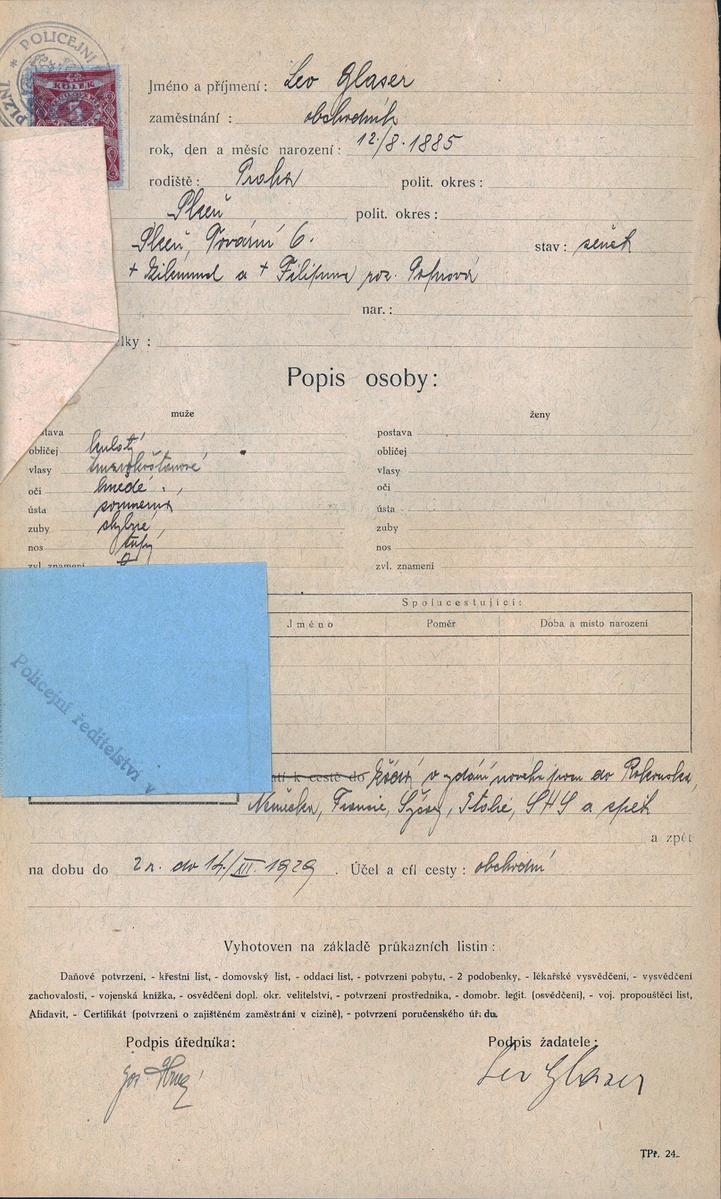 POLICEJNÍ
PLZNI
KOLEK
5
Jméno a příjmení: Leo Glaser
zaměstnání: obchodník
rok, den a měsíc narození: 12./8. 1885
rodiště: Praha polit. okres:
Plzeň polit. okres:
Plzeň, Tovární 6. stav: ženat
+ a + Filipina roz.
nar.:
lky:
Popis osoby:
muže ženy
stava postava
obličej kulatý obličej
vlasy tmavokaštanové vlasy
oči hnědé oči
ústa souměrná ústa
zuby chybné zuby
nos tupý nos
zvl. znamení zvl. znamení
Spolucestující:
Jméno Poměr Doba a místo narození
Policejní ředitelství v
tí k cestě do žádá o vydání nového pasu do Rakouska,
Německa, Francie, Švýcar, Itálie, SHS a zpět
a zpět
na dobu do 2 r. do 14./XII. 1929. Účel a cíl cesty: obchodní
Vyhotoven na základě průkazních listin:
Daňové potvrzení, - křestní list, - domovský list, - oddací list, - potvrzení pobytu, - 2 podobenky, - lékařské vysvědčení, - vysvědčení
zachovalosti, - vojenská knížka, - osvědčení dopl. okr. velitelství, - potvrzení prostředníka, - domobr. legit. (osvědčení), - voj. propouštěcí list,
Afidavit, - Certifikát (potvrzení o zajištěném zaměstnání v cizině), - potvrzení poručenského úřadu.
Podpis úředníka: Podpis žadatele:
Leo Glaser
TPř. 24.